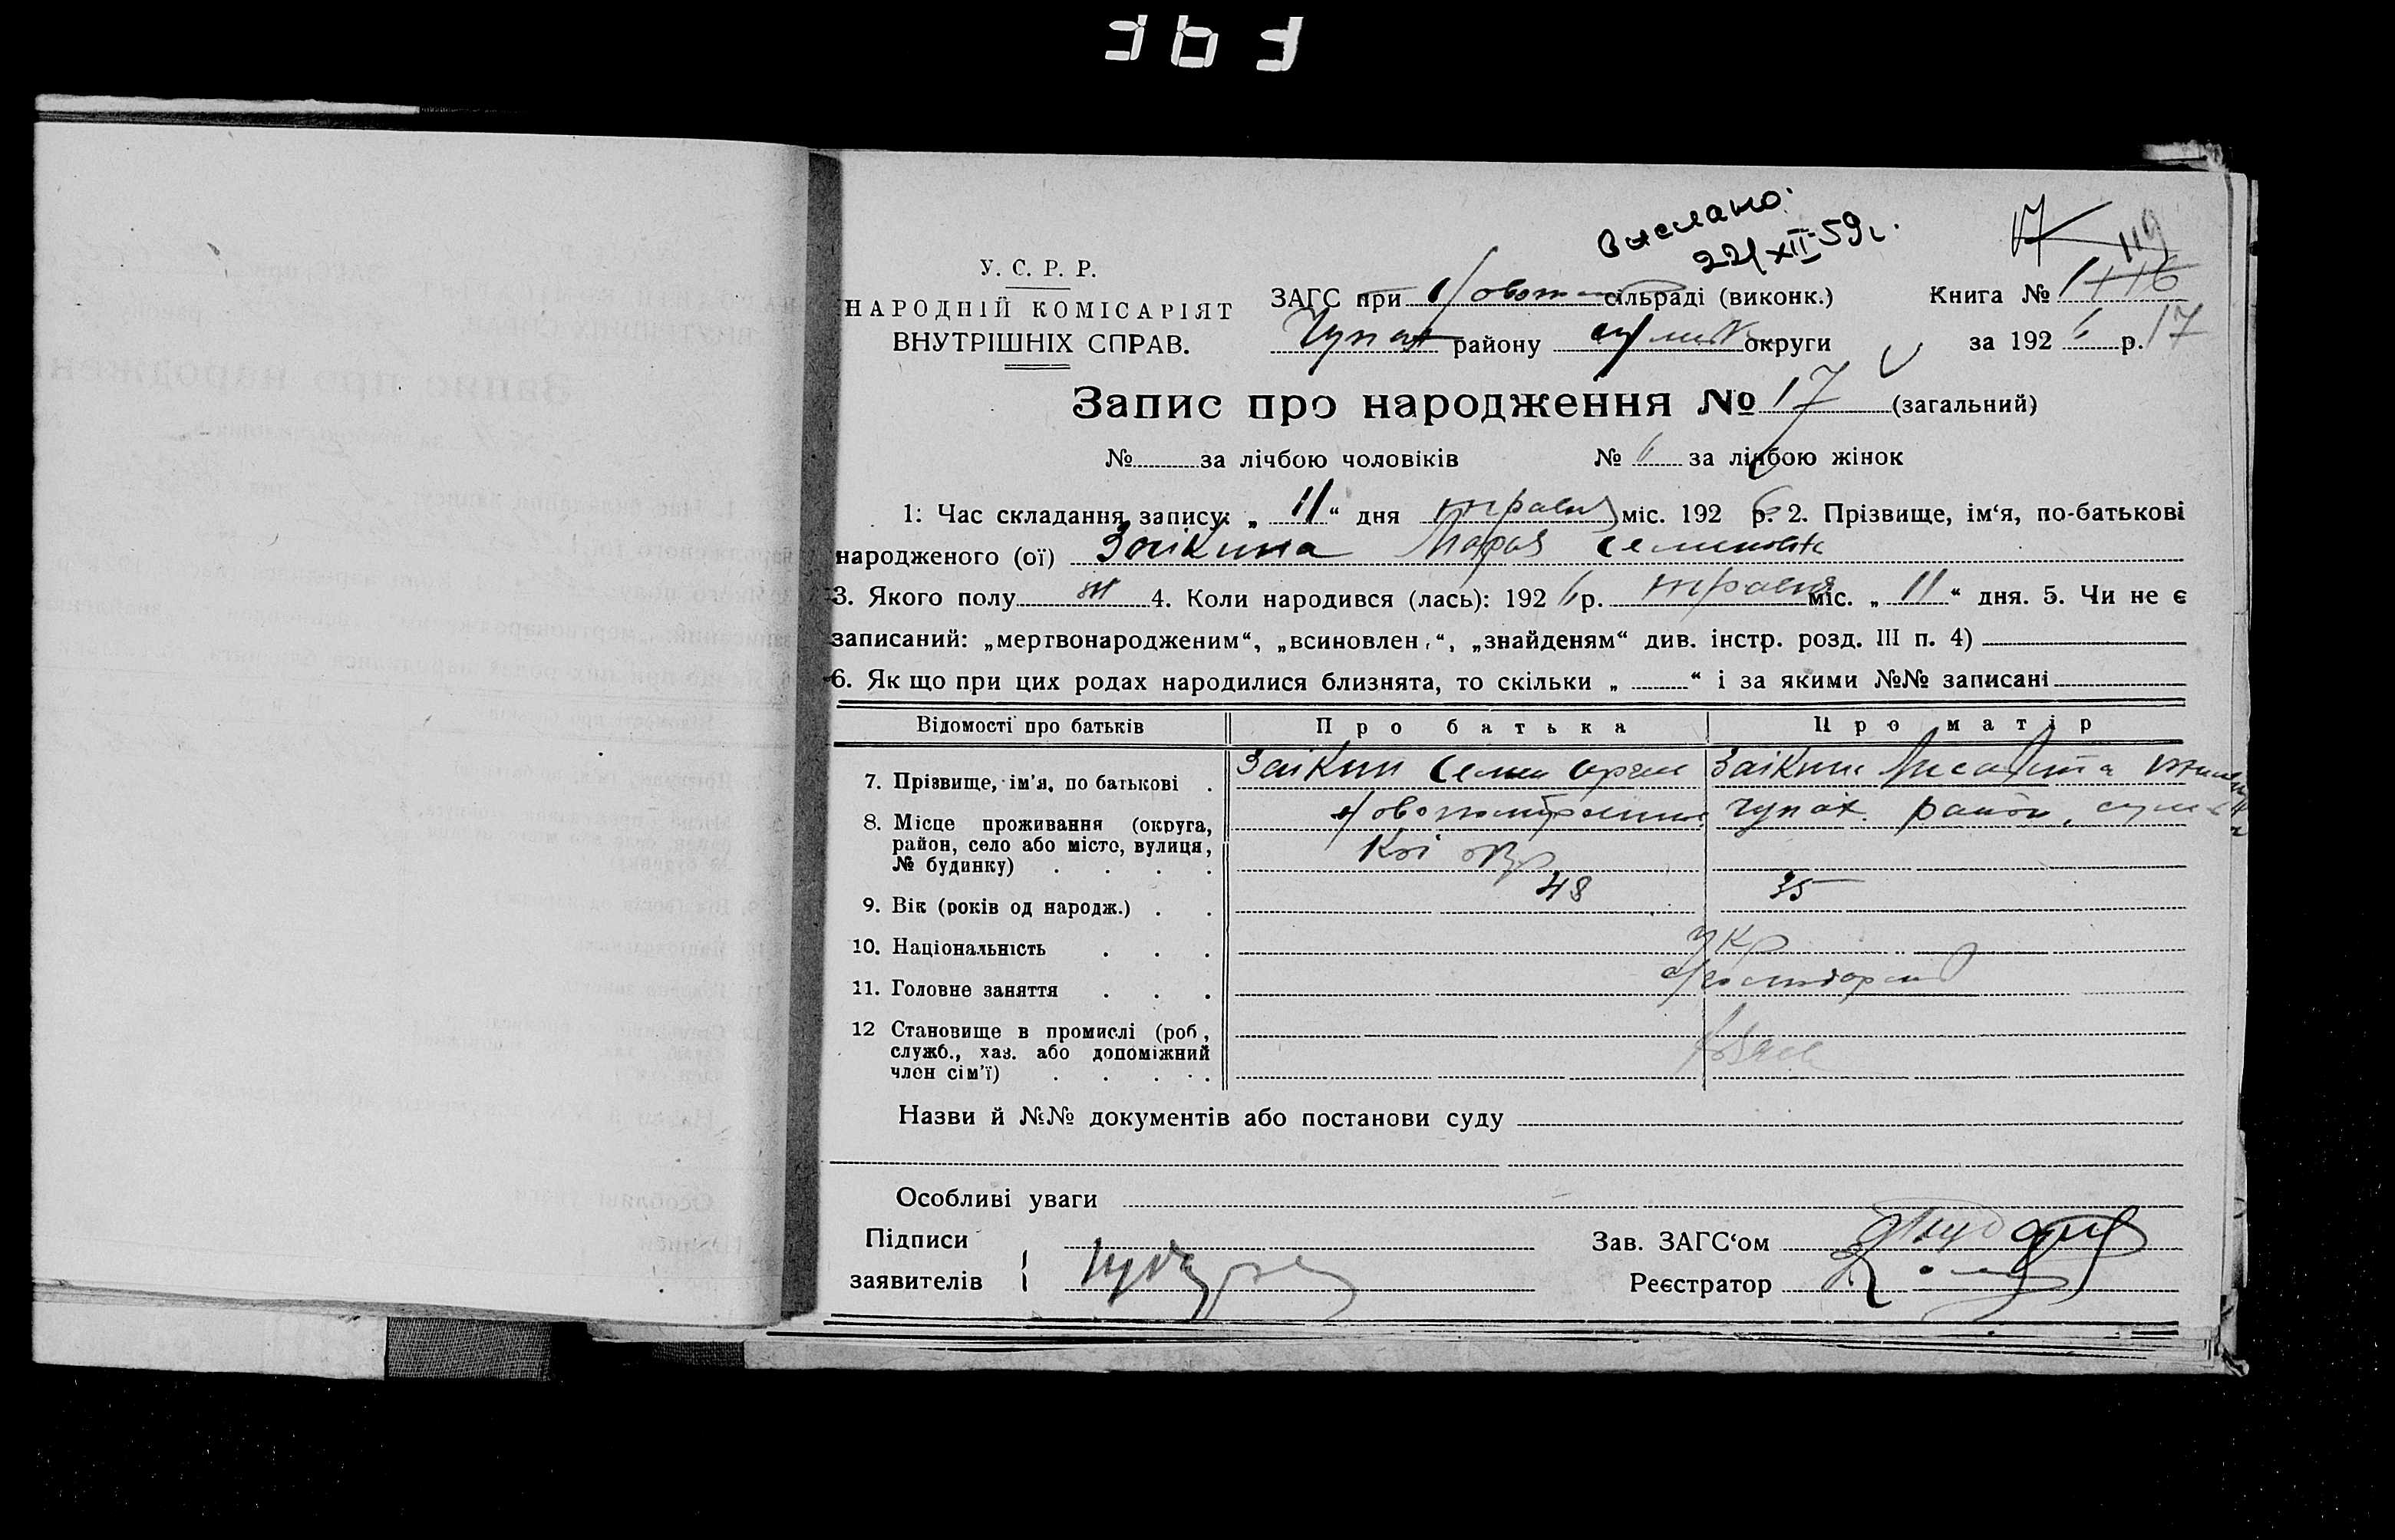 363
Выслано.
22/XII-59г.
17
119
У. С. Р. Р.
НАРОДНІЙ КОМІСАРІЯТ
ВНУТРІШНІХ СПРАВ.
ЗАГС при сільраді (виконк.)
Книга № 1116
Чупах району округи
за 192 6 р. 17
Запис про народження № 17 (загальний)
№ за лічбою чоловіків № 6 за лічбою жінок
1: Час складання запису: „ 11 “ дня травня міс. 192 6 р. 2. Прізвище, ім‘я, по-батькові
народженого (ої) Заікина Марія Семеновна
3. Якого полу ж 4. Коли народився (лась): 192 6 р. травня міс. „ 11 “ дня. 5. Чи не є
записаний: „мертвонародженим“, „всиновлен “, „знайденям“ див. інстр. розд. III п. 4)
6. Як що при цих родах народилися близнята, то скільки „ “ і за якими №№ записані
Відомості про батьків Про батька Про матір
7. Прізвище, ім‘я, по батькові . Заікин Семен Заікина
8. Місце проживання (округа, район, село або місто, вулиця, № будинку) . . . . чупах. район,
кої окр
9. Вік (років од народж.) . . 48 35
10. Національність . . . укр
11. Головне заняття . . .
12 Становище в промислі (роб, служб., хаз. або допоміжний член сім'ї) . . . . .
Назви й №№ документів або постанови суду
Особливі уваги
Підписи
заявителів
Зав. ЗАГС‘ом
Реєстратор